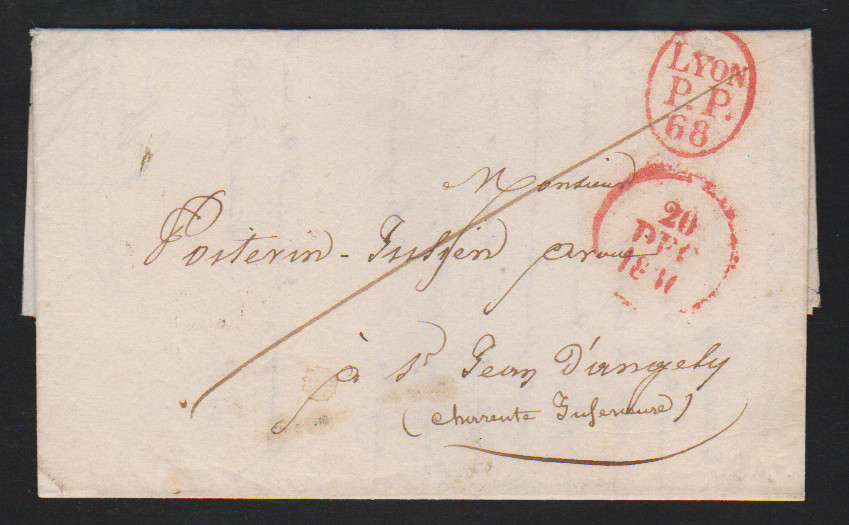 LYON
P.P.
68
20
DEC
Monsieur
Poiterin-Julien avoué
à St Jean D'angely
(charente Inferieure)